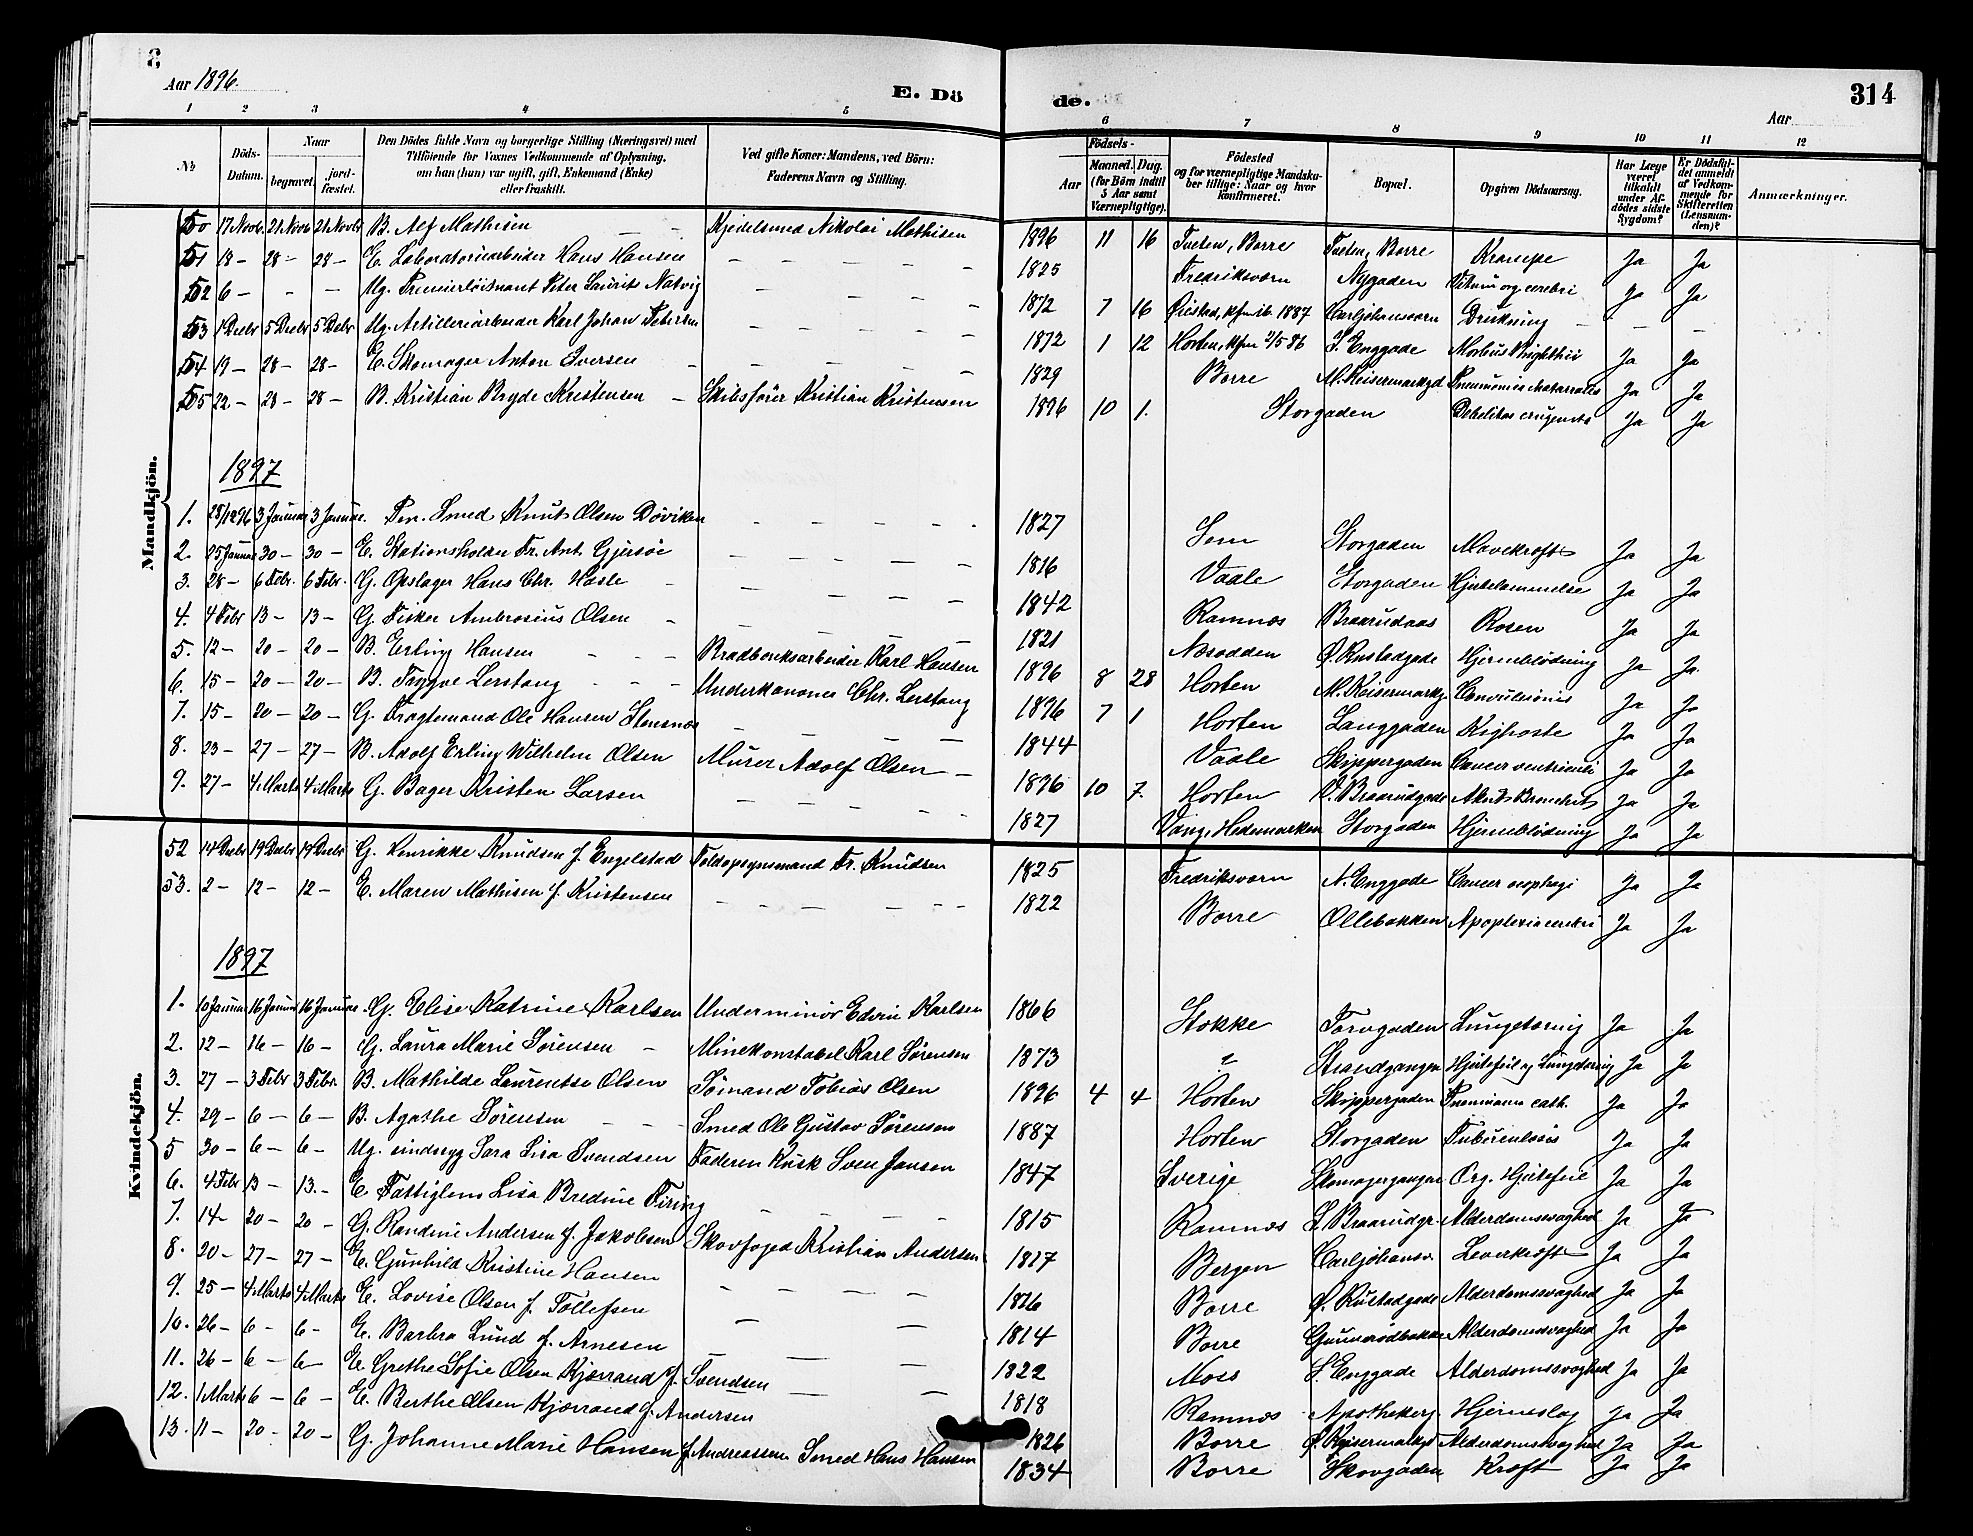 Aar 1896. E. Döde. Aar 314
1 2 3 4 5 6 7 8 9 10 11 12
No. Döds-Datum. Naar begravet. jordfæstet. Den Dödes fulde Navn og borgerlige Stilling (Næringsvei) med Tilföiende for Voxnes Vedkommende af Oplysning, om han (hun) var ugift, gift, Enkemand (Enke) eller fraskilt. Ved gifte Koner: Mandens, ved Börn: Faderens Navn og Stilling. Födsels- Aar Maaned. Dag. (for Börn indtil 5 Aar samt Værnepligtige). Födested og for værnepligtige Mandskaber tillige: Naar og hvor konfirmeret. Bopæl. Opgiven Dödsaarsag. Har Læge været tilkaldt under Afdödes sidste Sygdom? Er Dödsfaldet anmeldt af Vedkommende for Skifteretten (Lensmanden)? Anmærkninger.
Mandkjön.
50 17 Novb. 21 Novb 21 Novbr B. Alf Mathisen - - Kjedelsmed Nikolai Mathisen 1896 11 16 Tveten, Borre Tveten, Borre Krampe Ja Ja
51 18 - 28 - 28 - E. Laboratoriearbeider Hans Hansen - - - - - 1825 Fredriksværn Nygaden Vitium org. cerebri Ja Ja
52 6 - - - Ug. Premierløitnant Peter Laurits Natvig - - - - 1872 7 16 Øiestad, kfm ib. 1887 Carljohansværn Drukning - - -
53 1 Decbr 5 Decbr 5 Debr Ug. Artilleriarbeider Karl Johan Petersen - - - - 1872 1 12 Horten, kfm 2/5 86 S. Enggade Morbus Brightii Ja Ja
54 19 - 28 - 28 - E. Skomager Anton Iversen - - - - - 1829 Borre M. Keisermarkgd Pneumonia chatarralis Ja Ja
55 22 - 28 - 28 - B. Kristian Bryde Kristensen - Skibsfører Kristian Kristensen 1896 10 1. Storgaden Debilitas congenita Ja Ja
1897
1. 28/12 96 3 Januar 3 Januar. Pen. Smed Knut Olsen Døviken - - - - - 1827 Sem Storgaden Mavekræft Ja Ja
2. 25 Januar 30 - 30 - E. Stationsholder Fr. Ant. Gjersøe - - - - - 1816 Vaale Storgaden Hjertelammelse Ja Ja
3. 28 - 6 Febr. 6 Febr. G. Opslager Hans Chr. Hasle - - - - - 1842 Ramnæs Braarudaas Rosen Ja Ja
4. 4 Febr 13 - 13 - G. Fisker Ambrosius Olsen - - - - - 1821 Næsodden Ø. Rustadgade Hjerneblödning Ja Ja
5. 12 - 20 - 20 - B. Erling Hansen - - - Bradbænksarbeider Karl Hansen 1896 8 28 Horten M. Keisermarkg. Convulsionis Ja Ja
6. 15 - 20 - 20 - B. Trygve Lerstang - - - Underkanoner Chr. Lerstang 1896 7 1 Horten Langgaden Kighoste Ja Ja
7. 15 - 20 - 20 - G. Fragtemand Ole Hansen Stensnæs - - - - - 1844 Vaale Skippergaden Cancer ventriculi Ja Ja
8. 23 - 27 - 27 - B. Adolf Erling Wilhelm Olsen Murer Adolf Olsen - 1896 10 7. Horten V. Braarudgade Akut Bronchit Ja Ja
9. 27 - 4 Marts 4 Marts G. Bager Kristen Larsen - - - - - 1827 Vang, Hedemarken Storgaden Hjerneblödning Ja Ja
Kvindekjön.
52 14 Decbr 19 Decbr 19 Decbr G. Henrikke Knudsen f. Engelstad Toldopsynsmand Fr. Knudsen 1825 Fredriksværn N. Enggade Cancer oesophagi Ja Ja
53. 2 - 12 - 12 - E. Maren Mathisen f. Kristensen - - - - - - 1822 Borre Ollebakken Apoplexia cerebri Ja Ja
1897
1. 10 Januar 16 Januar 16 Januar G. Elise Katrine Karlsen Underminör Edvin Karlsen 1866 Stokke Torvgaden Lungetæring Ja Ja
2. 12 - 16 - 16 - G. Laura Marie Sørensen - Minekonstabel Karl Sørensen 1873 ? Strandgangen Hjertefeil og Lungetæring Ja Ja
3. 27 - 3 Febr 3 Febr. B. Mathilde Laurentse Olsen Sømand Tobias Olsen 1896 4 4 Horten Skippergaden Pneumonia cath. Ja Ja
4. 29 - 6 - 6 - B. Agathe Sørensen - - - Smed Ole Gustav Sørensen 1887 Horten Storgaden Tuberculosis Ja Ja
5 30 - 6 - 6 - Ug. sindssyg Sara Lisa Svendsen Faderen Kusk Sven Jansen 1847 Sverige Skomagergangen Org. Hjertefeil Ja Ja
6. 4 Febr 13 - 13. - E. Fattiglem Lisa Bredine Firing - - - - 1815 Ramnæs S. Braarudgr. Alderdomssvaghed Ja Ja
7. 14 - 20 - 20 - G. Randine Andersen f. Jakobsen Skovfoged Kristian Andersen 1817 Bergen Carljohansv. Leverkræft Ja Ja
8. 20 - 27 - 27 - E. Gunhild Kristine Hansen - - - - - 1816 Borre Ø. Rustadgade Alderdomssvaghed Ja Ja
9. 25 - 4 Marts 4 Marts E. Lovise Olsen f. Tollefsen - - - 1814 Borre Gunnerødbakken Alderdomssvaghed Ja Ja
10. 26 - 6 - 6 - E. Barbra Lund f. Arnesen - - - 1822 Moss S. Enggade Alderdomssvaghed Ja Ja
11. 26 - 6 - 6 - E. Grethe Sofie Olsen Kjærrand f. Svendsen - - 1818 Ramnæs Apothekerg. Hjerneslag Ja Ja
12. 1 Marts 6 - 6 - E. Berthe Olsen Kjærrand f. Andersen 1826 Borre Ø. Keisermarkgd Alderdomssvaghed Ja Ja
13. 11 - 20 - 20 - G. Johanne Marie Hansen f. Andreassen Smed Hans Hansen 1834 Borre Skovgaden Kræft Ja Ja